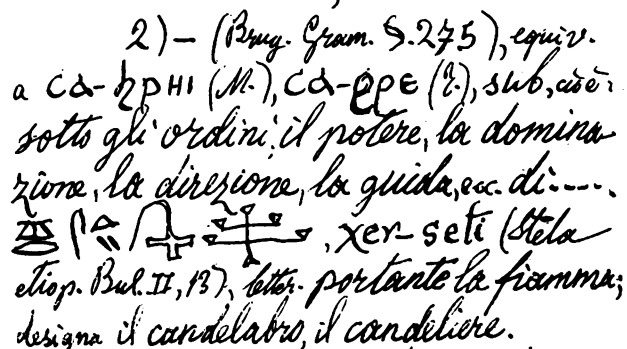 2) — (Brug. Gram. §. 275), equiv.
a ⲥⲁ-ϧⲣⲏⲓ (M.), ⲥⲁ-ϩⲣⲉ (T.), sub, cioè:
sotto gli ordini, il potere, la domina
zione, la direzione, la guida, ecc. di.....
, χer-seti (Stela
etiop. Bul. II, 13), letter. portante la fiamma;
designa il candelabro, il candeliere.